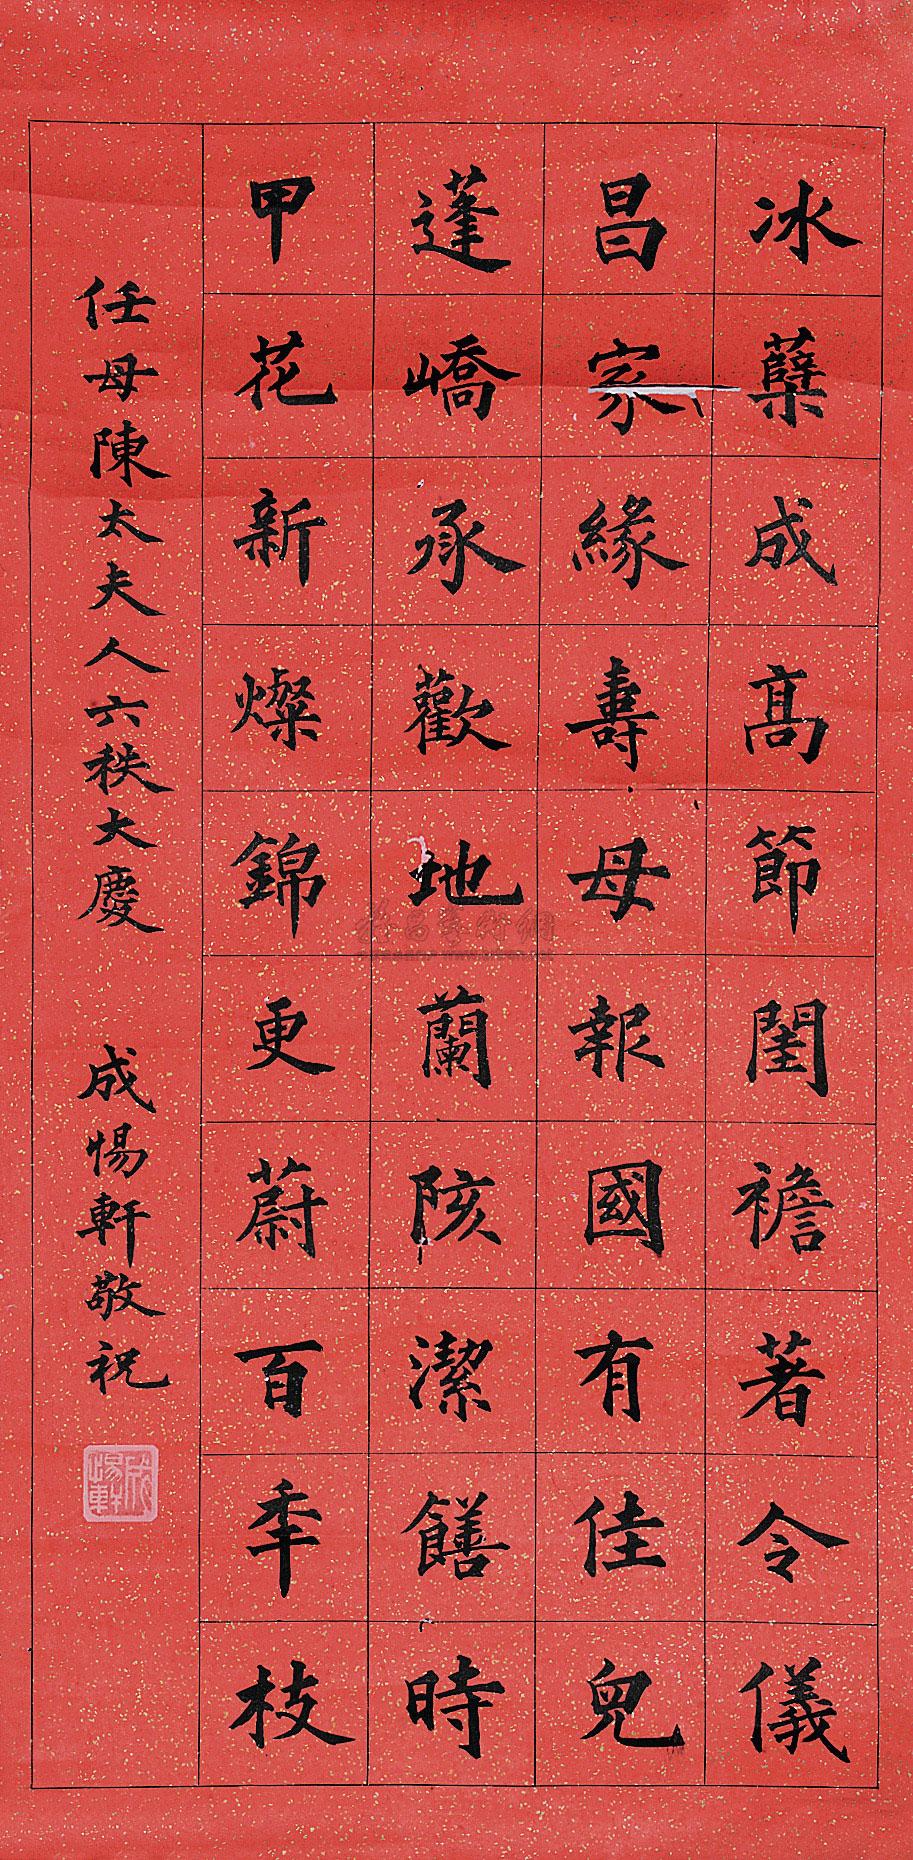 冰蘖成高節閨襜著令儀
昌家緣壽母報國有佳兒
蓬嶠承歡地蘭陔潔饍時
甲花新燦錦更蔚百年枝
任母陳太夫人六秩大慶 成惕軒敬祝
成惕軒